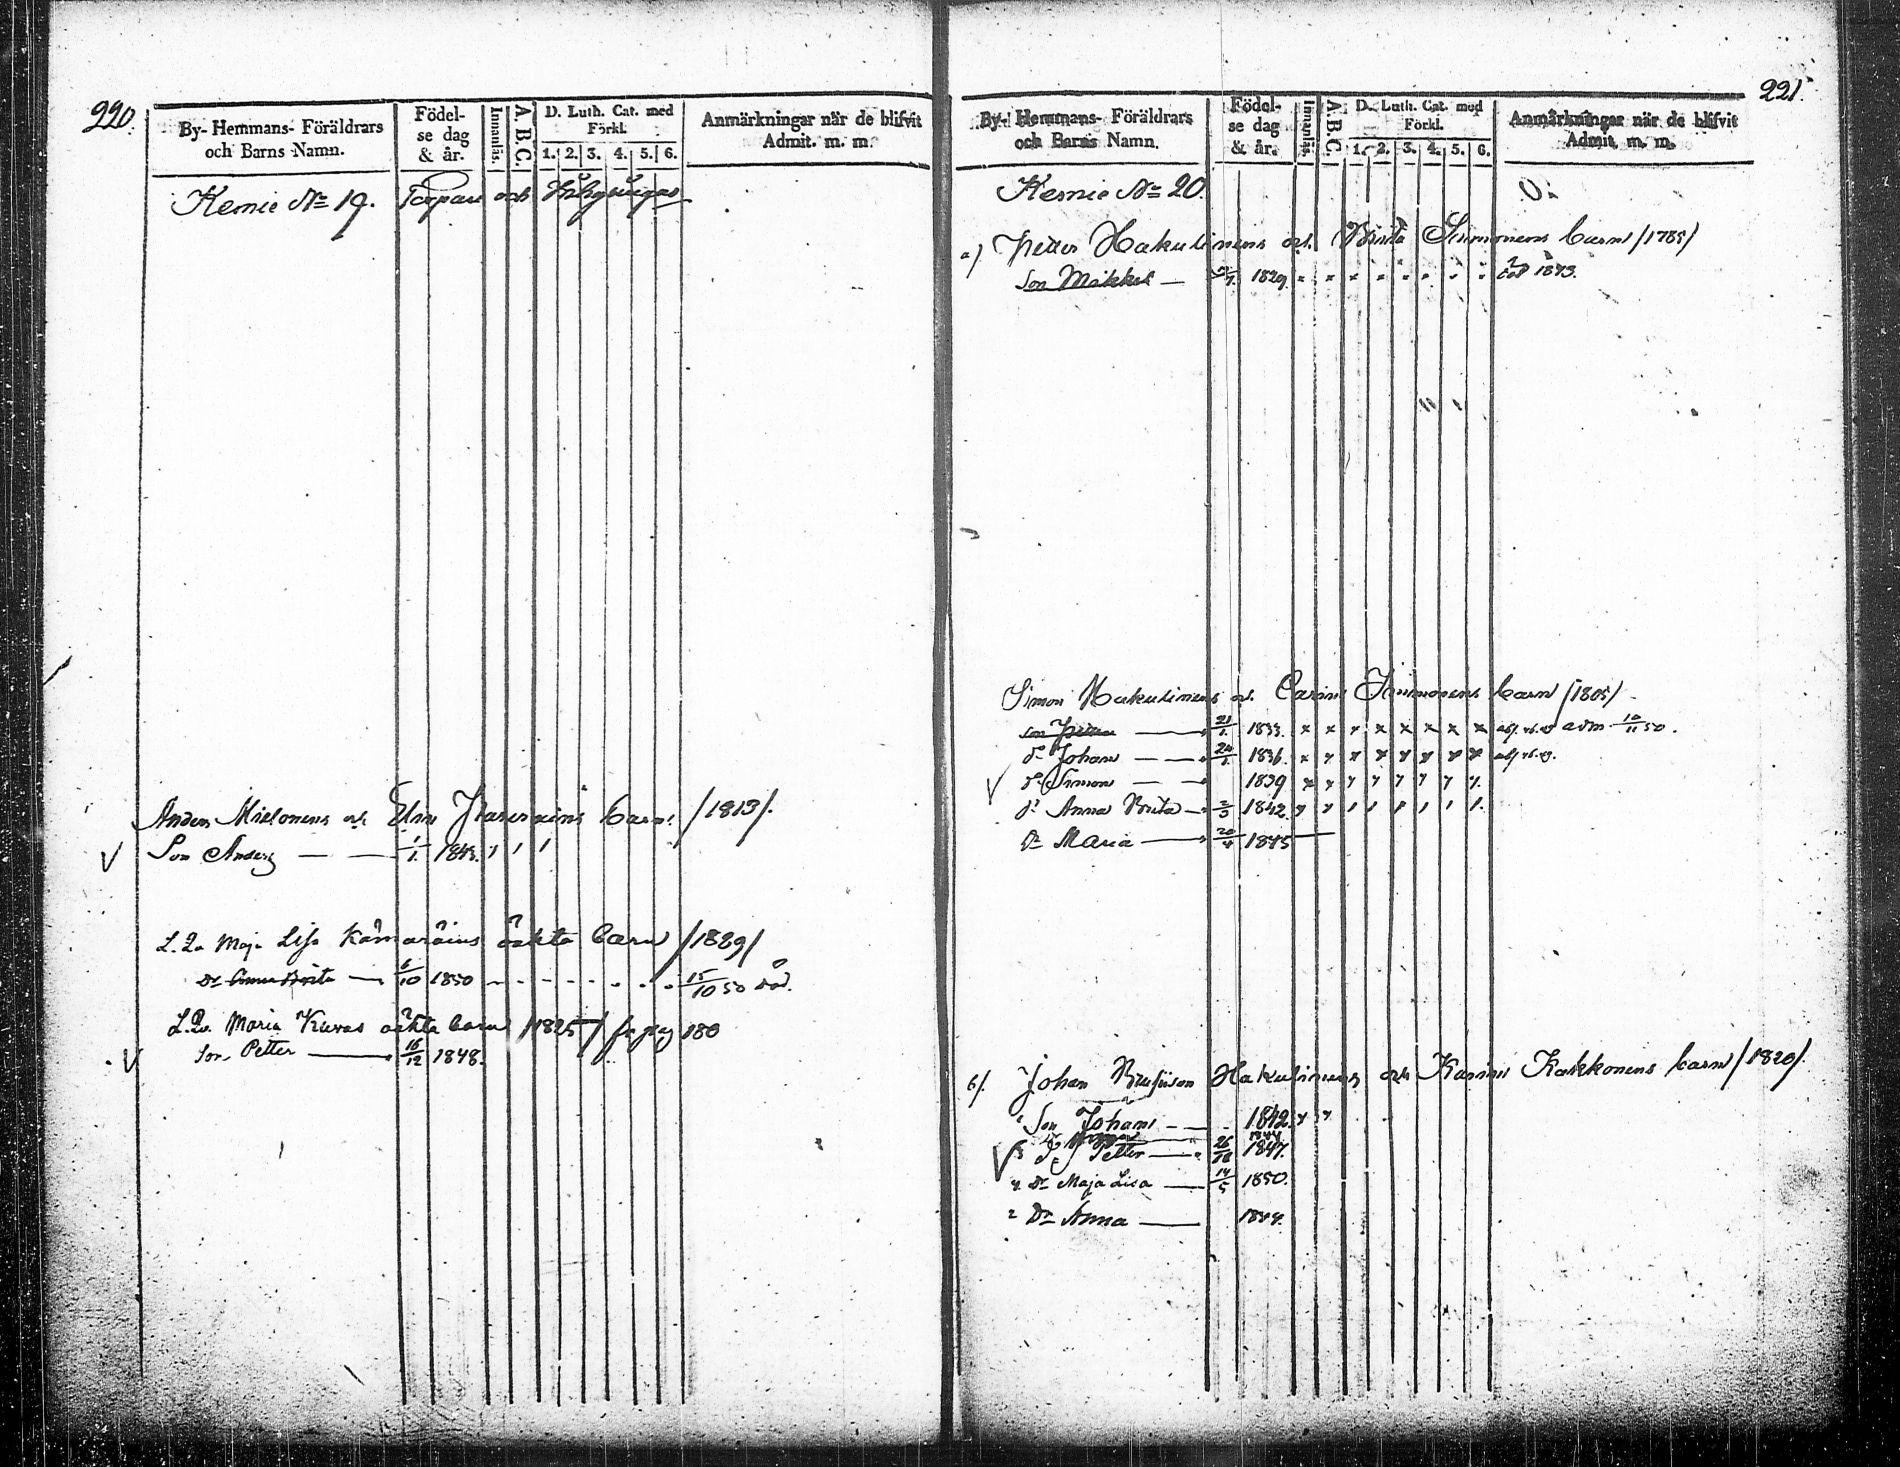 220.
By- Hemmans- Föräldrars och Barns Namn.
Födel- se dag & år.
Innanläs.
A. B. C.
D. Luth. Cat. med Förkl.
1. 2. 3. 4. 5. 6.
Anmärkningar när de blifvit Admit. m. m.
Kemie No 19. Torpare och
Anders Mielonens och Elin barn /1813/.
Son Anders 1/1 1843.
L. Qv. Maja Lisa Kämäräins oäkta barn /1829/
Dr Anna Brita 6/10 1850 15/10 50 död.
L. Qv. Maria Kuvas oäkta barn /1825/ fr pag 180
Son Petter 16/12 1848.
221.
By- Hemmans- Föräldrars och Barns Namn.
Födel- se dag & år.
Innanläs.
A. B. C.
D. Luth. Cat. med Förkl.
1. 2. 3. 4. 5. 6.
Anmärkningar när de blifvit Admit. m. m.
Kemie No 20.
a) Petter Hakulinens och Brita barn /1785/
Son Mikkel 1829 1843.
Simon Hakulinens och Carin barn /1805/
son Petter 21/1. 1833. x x x x x x x x adm 10/11 50.
d° Johan 24/1. 1836. x x x x x x x x
d° Simon 1839 x x x x x x x x
Dr Anna Brita 2/3 1842.
Dr Maria 20/4 1845
b/. Johan Hakulinens och Karin Kakkonens barn /1820/.
1 Son Johan 1842.
1844
3 d° Petter 26/10 1847.
4. Dr Maja Lisa 14/5 1850.
2 Dr Anna 1844.